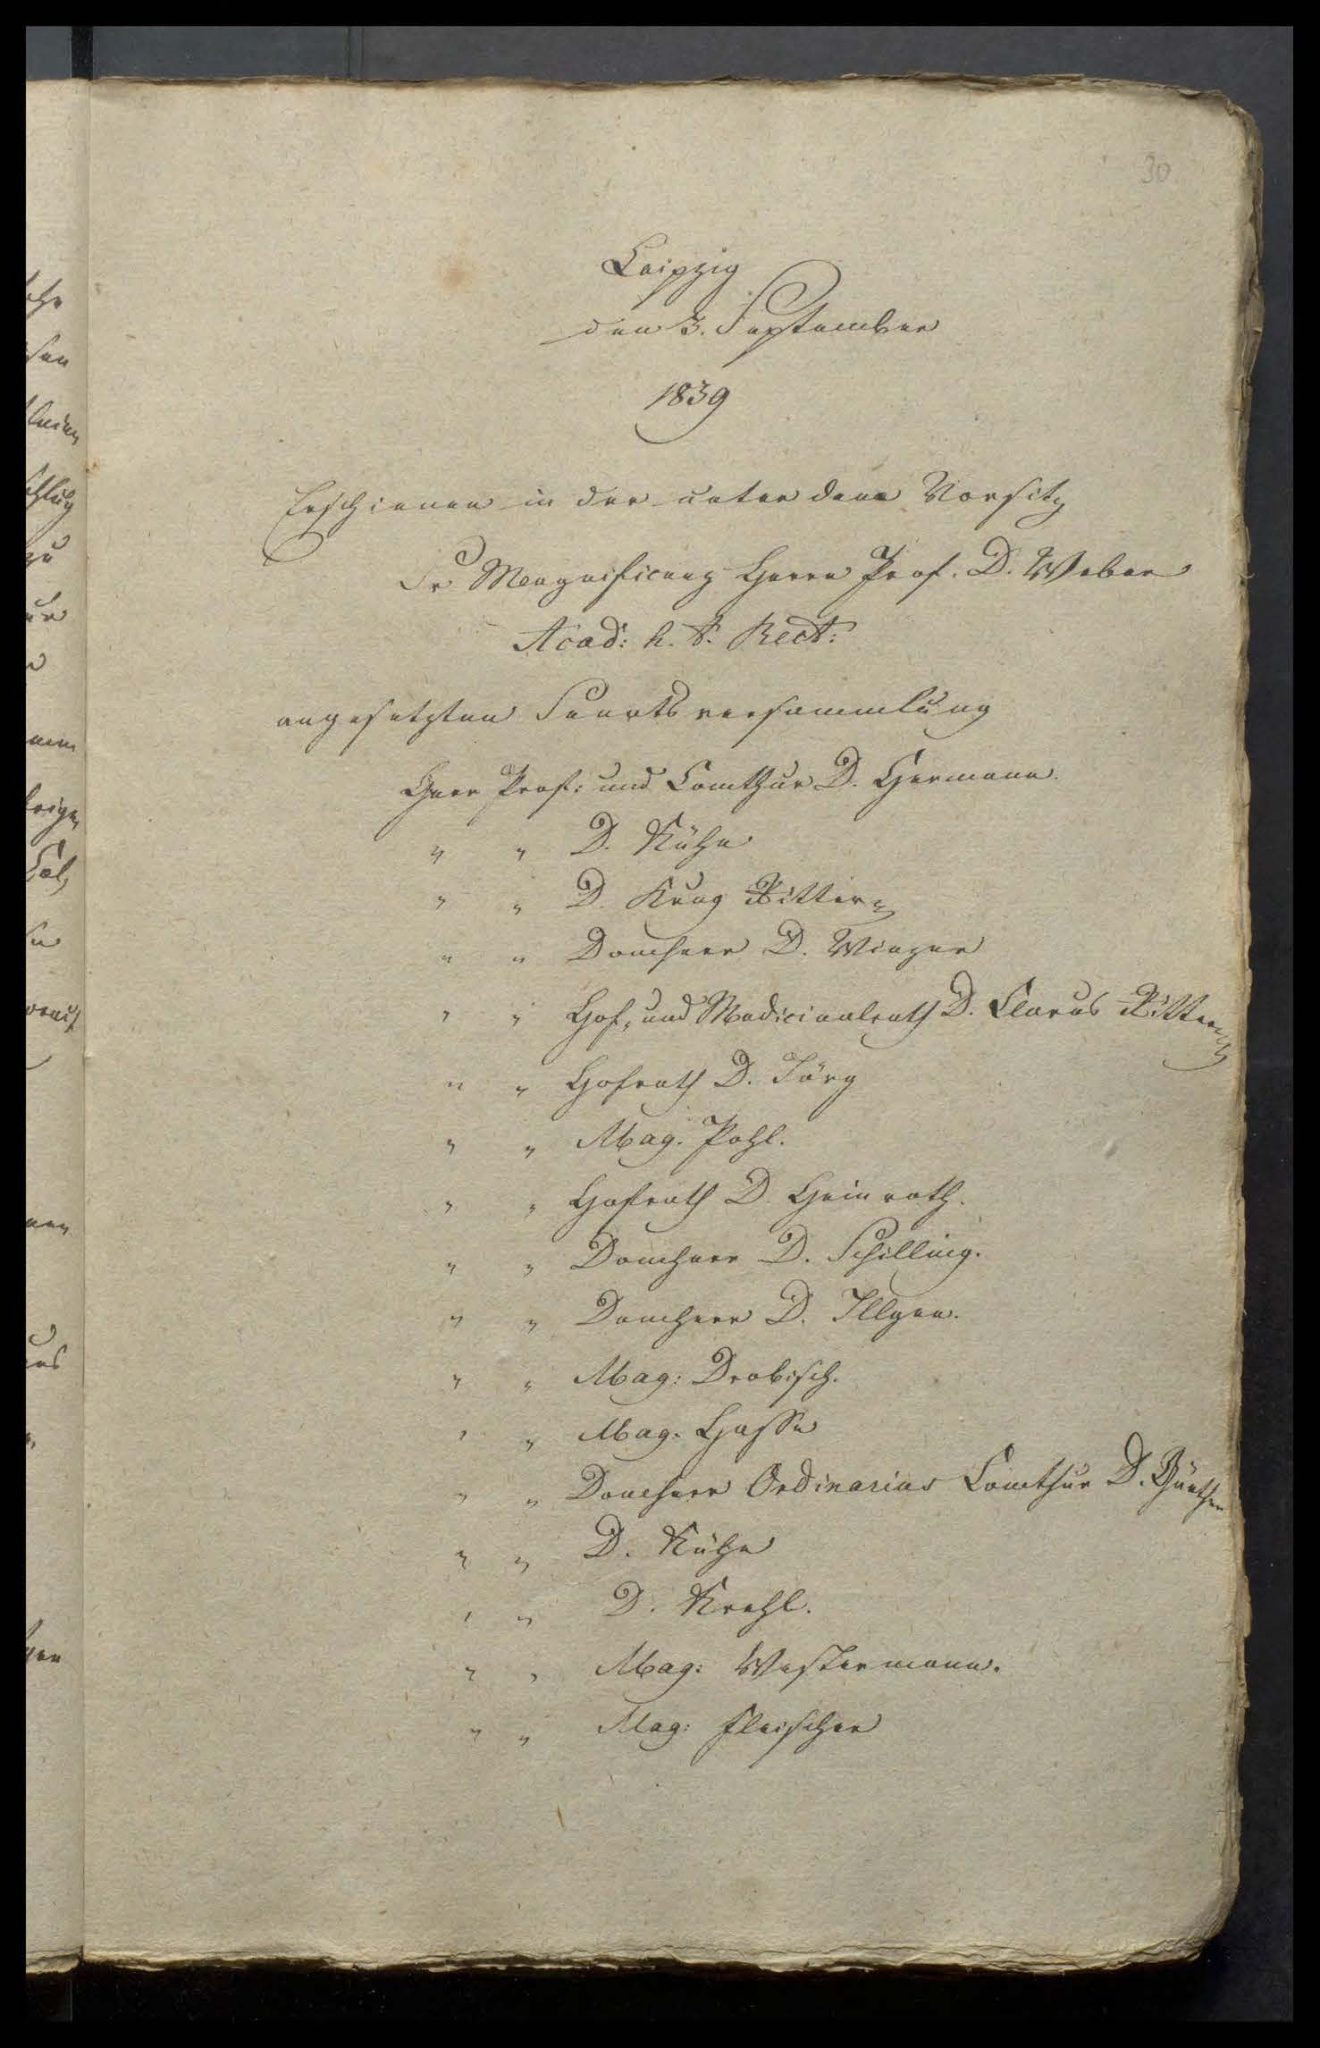 30
Leipzig
den 3. September
1839
Erschienen in der unter dem Vorsitz
Sr Magnificenz Herrn Prof. D. Weber
Acad: h. t. Rect:
angesetzten Senatsversammlung
Herr Prof: und Comthur D. Hermann.
" " D. Kühn
" " D. Krug Ritter
" " Domherr D. Winzer
" " Hof- und Medicinalrath D. Clarus Ritter
" " Hofrath D. Jörg
" " Mag. Pohl.
" " Hofrath D. Heinroth.
" " Domherr D. Schilling.
" " Domherr D. Illgen.
" " Mag: Drobisch.
" " Mag. Hasse
" " Domherr Ordinarius Comthur D. Günther
" " D. Kühn
" " D. Krehl.
" " Mag: Westermann.
" " Mag: Fleischer